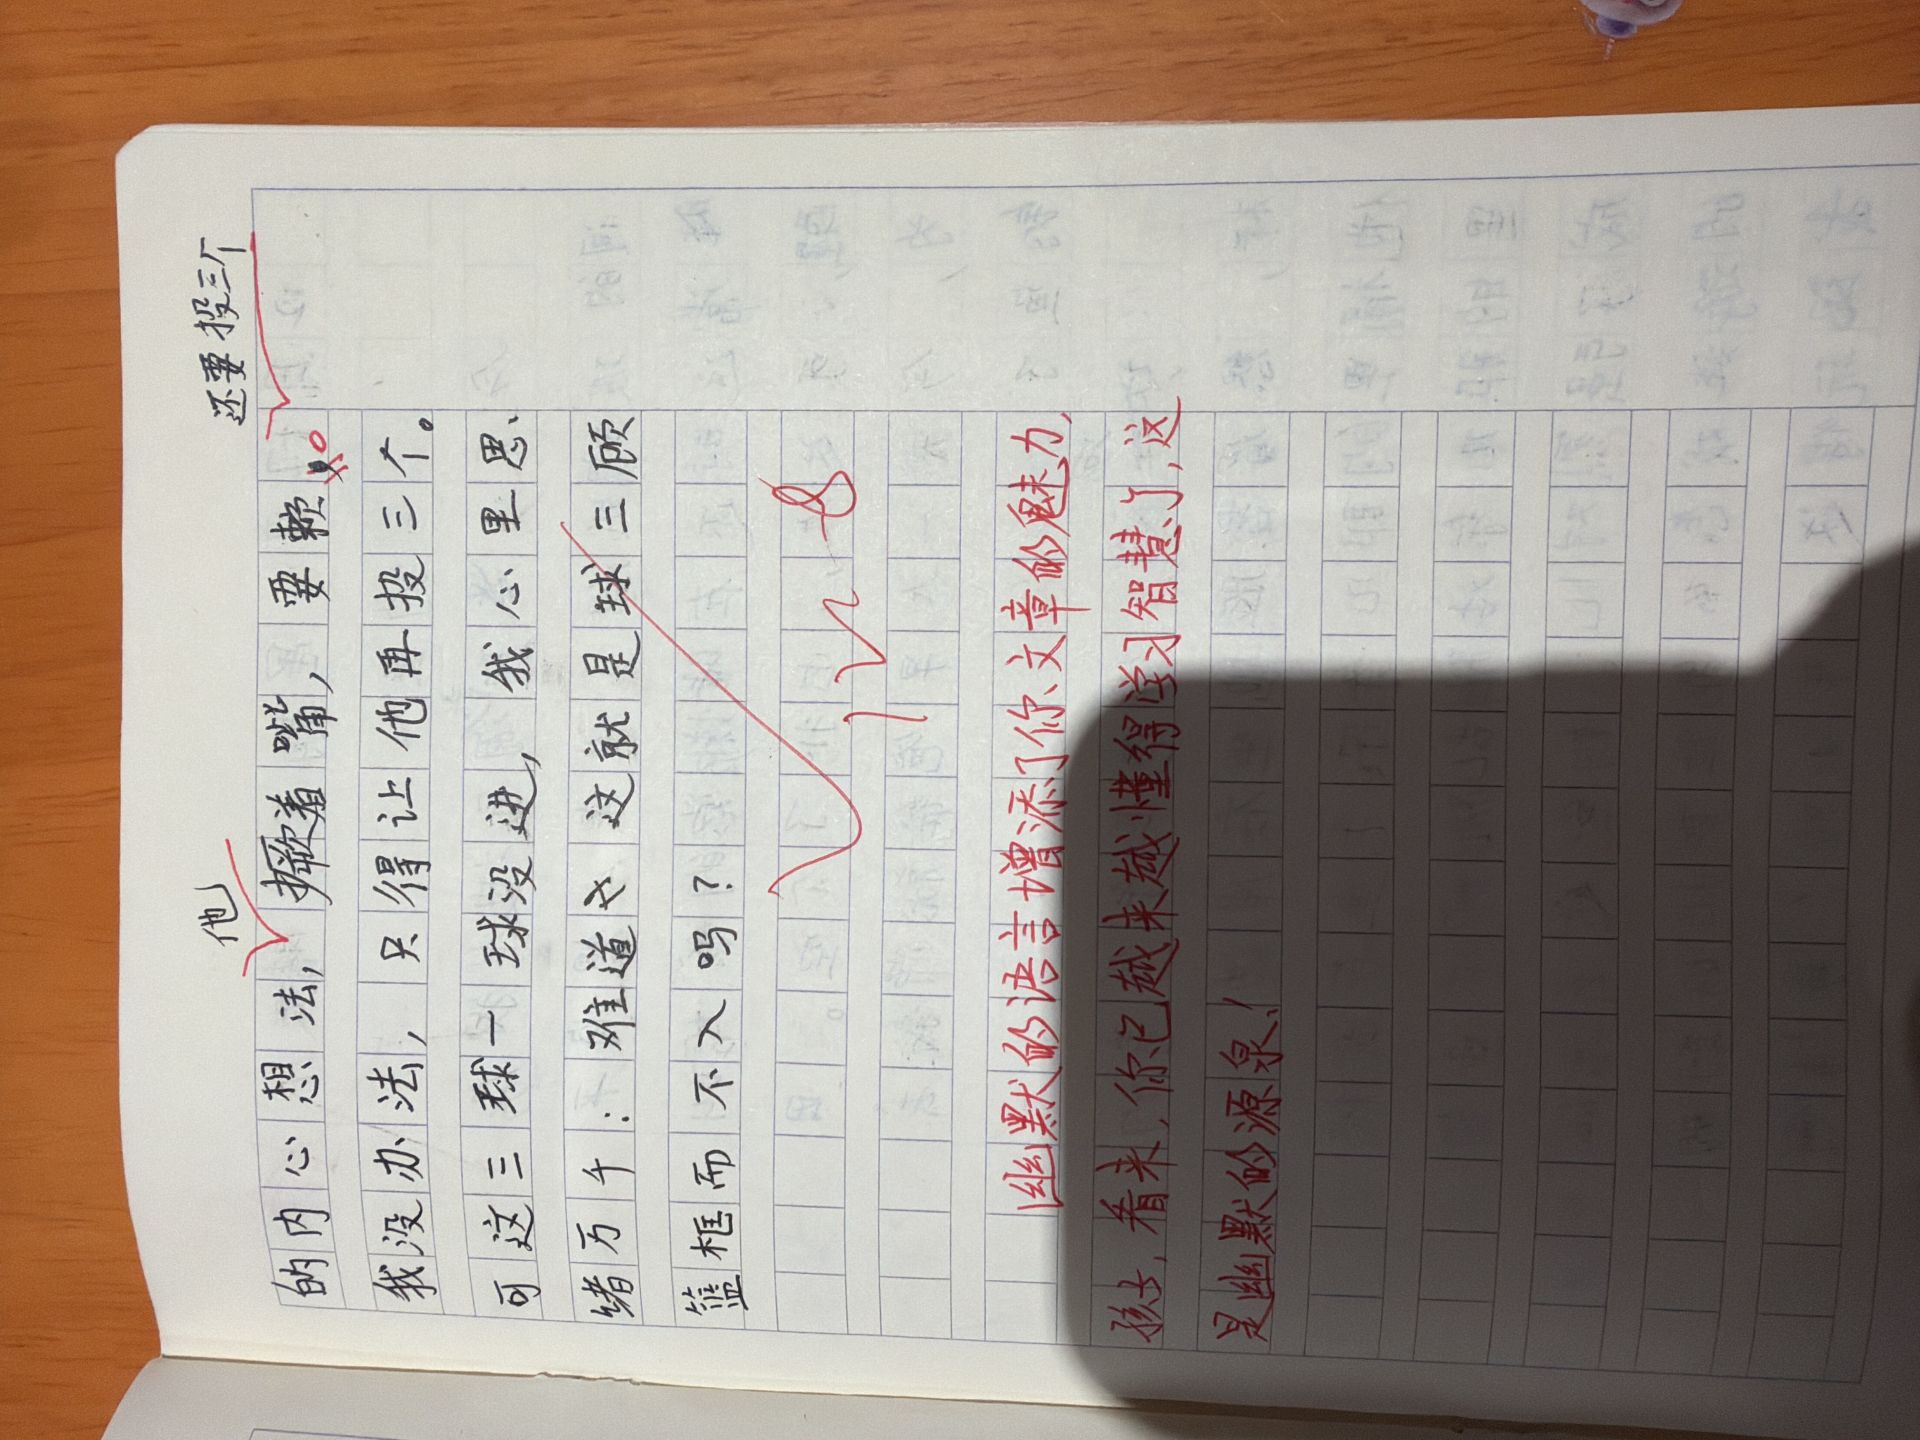 还要投三个
他
的内心想法，撅着嘴，要赖。
我没办法，只得让他再投三个。
可这三球一球没进，我心里思
绪万千：难道这就是球三顾
篮框而不入吗？
幽默的语言增添了你文章的魅力，
孩子，看来，你已越来越懂得学习智慧了，这
是幽默的源泉！